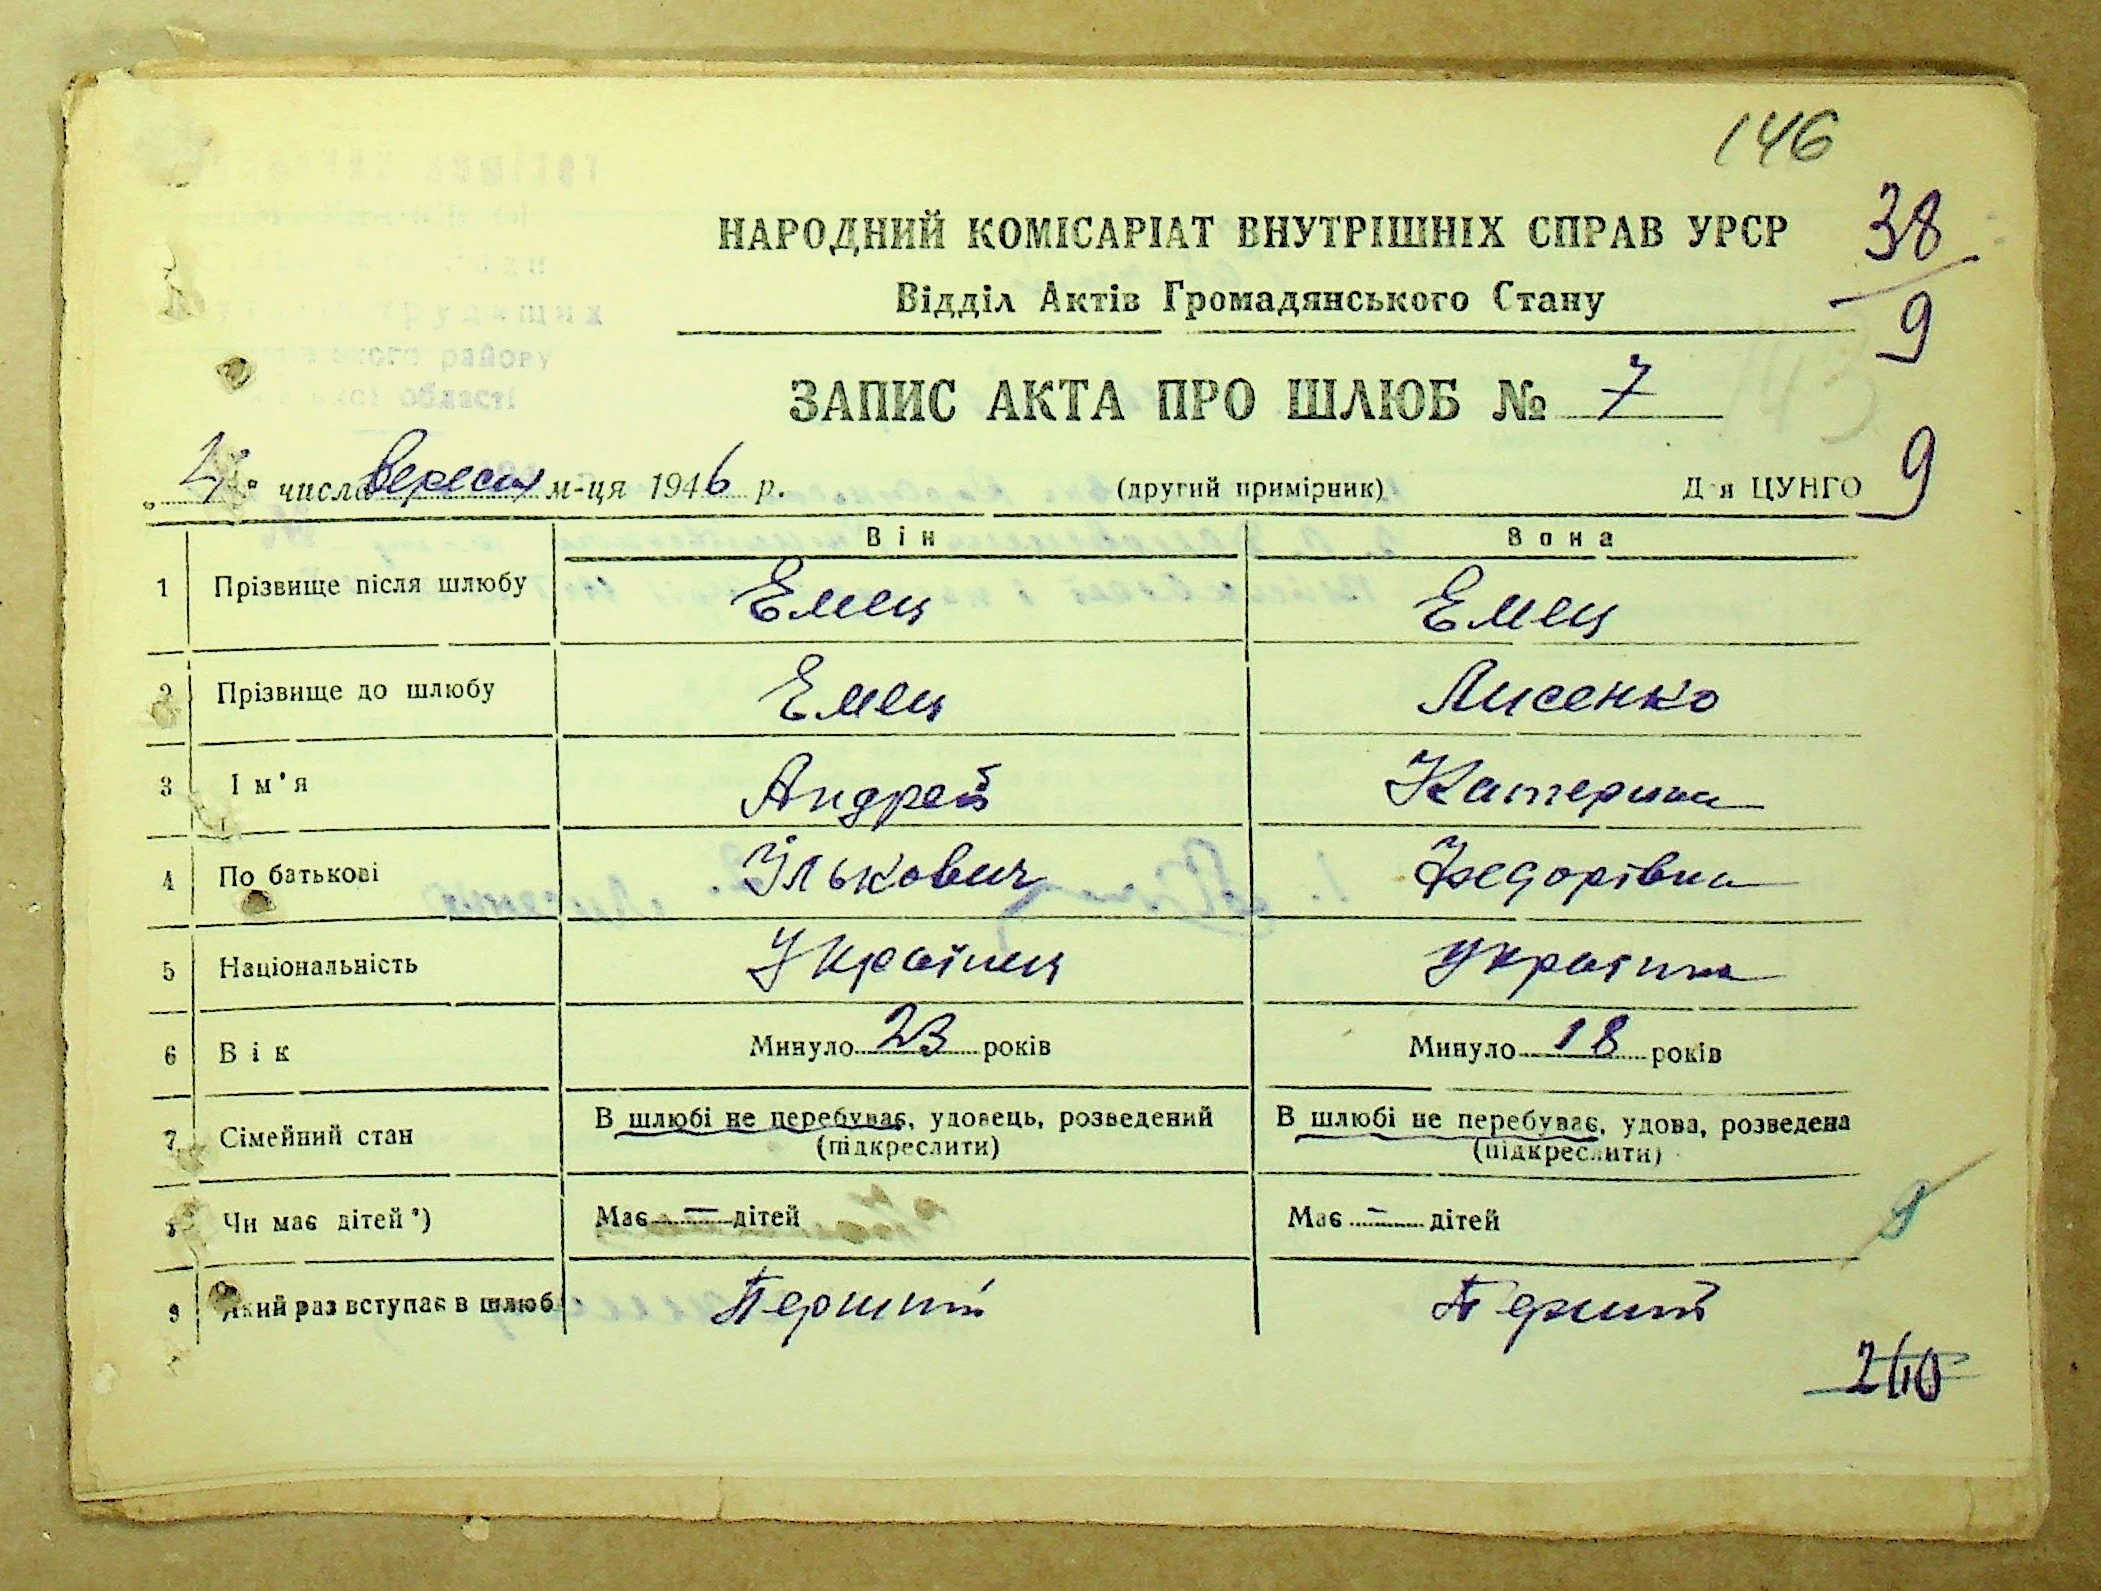 146
НАРОДНИЙ КОМІСАРІАТ ВНУТРІШНІХ СПРАВ УРСР
38
9
Відділ Актів Громадянського Стану
ЗАПИС АКТА ПРО ШЛЮБ № 7
9
числа вересня м-ця 1946 р. (другий примірник) Для ЦУНГО
Він Вона
1 Прізвище після шлюбу Емец Емец
2 Прізвище до шлюбу Емец Лисенко
3 Ім'я Андрей Катерина
4 По батькові Ількович Федорівна
5 Національність Українец Українка
6 Вік Минуло 23 років Минуло 18 років
7 Сімейний стан В шлюбі не перебуває, удовець, розведений В шлюбі не перебуває, удова, розведена
(підкреслити) (підкреслити)
8 Чи має дітей*) Має — дітей Має — дітей
9 Який раз вступає в шлюб Перший Перший